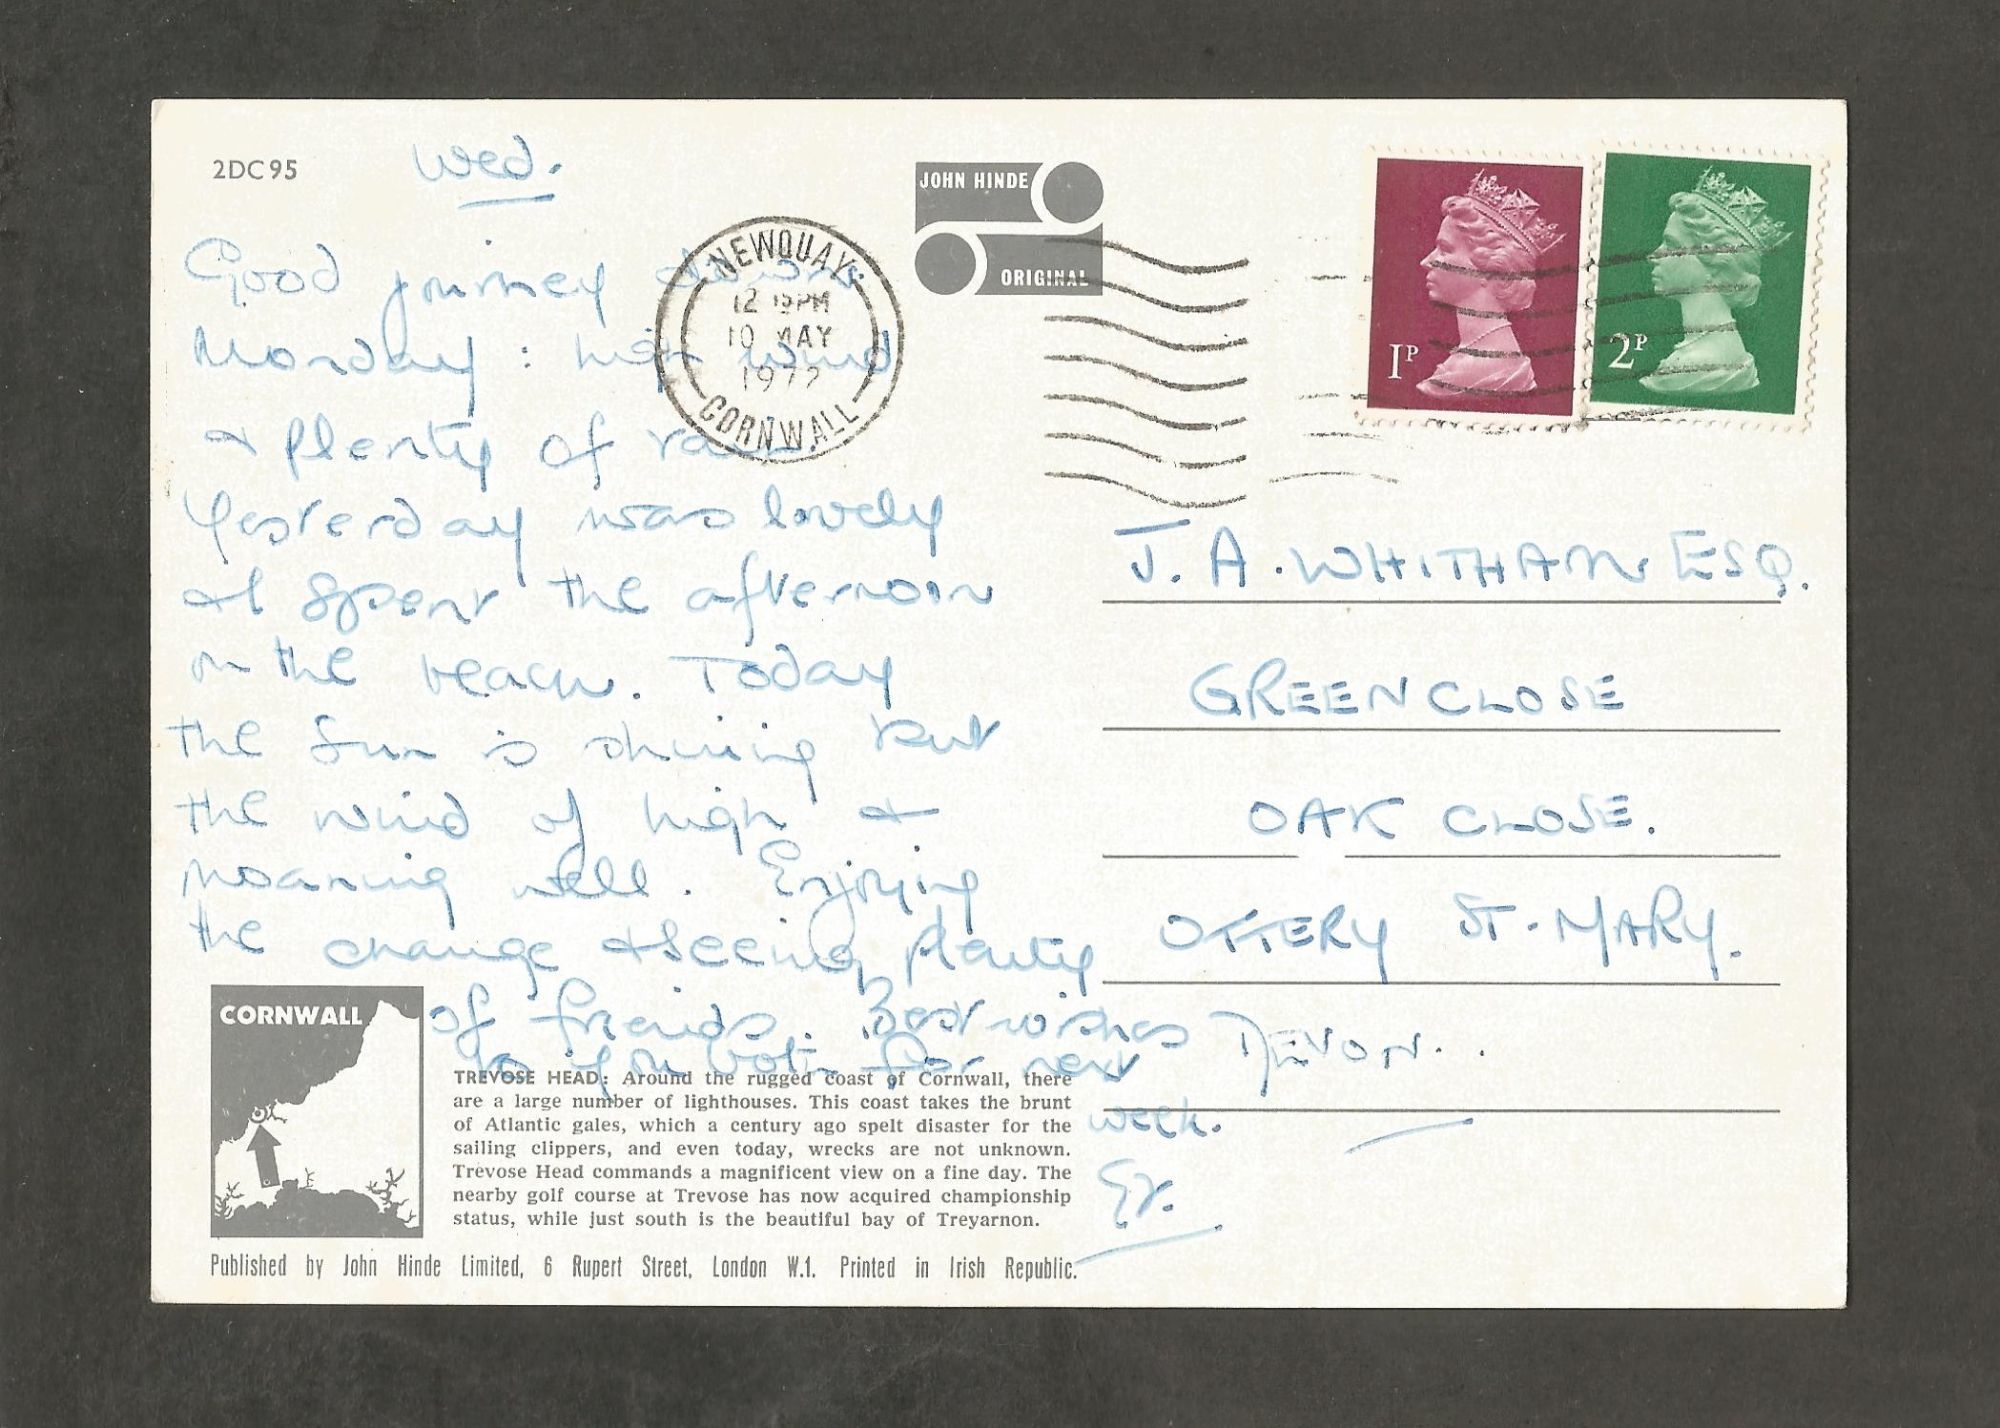 2DC95
Wed.
JOHN HINDE
ORIGINAL
NEWQUAY
12 15PM
10 MAY
1972
CORNWALL
1P
2P
Good journey down
Monday : high wind
& plenty of rain.
Yesterday was lovely
& I spent the afternoon
on the beach. Today
the sun is shining but
the wind of high &
moaning well. Enjoying
the change & seeing plenty
of friends. Best wishes
to you both for next
week.
J. A. WHITHAM ESQ.
GREENCLOSE
OAK CLOSE.
OTTERY ST. MARY.
DEVON.
CORNWALL
TREVOSE HEAD: Around the rugged coast of Cornwall, there
are a large number of lighthouses. This coast takes the brunt
of Atlantic gales, which a century ago spelt disaster for the
sailing clippers, and even today, wrecks are not unknown.
Trevose Head commands a magnificent view on a fine day. The
nearby golf course at Trevose has now acquired championship
status, while just south is the beautiful bay of Treyarnon.
Published by John Hinde Limited, 6 Rupert Street, London W.1. Printed in Irish Republic.